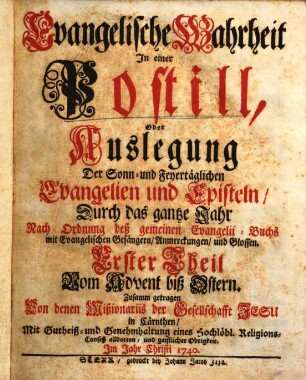 Evangelische Wahrheit
In einer
Postill,
Oder
Auslegung
Der Sonn- und Feyertäglichen
Evangelien und Episteln/
Durch das gantze Jahr
Nach Ordnung deß gemeinen Evangeli-Buchs
mit Evangelischen Gesängern/ Anmerckungen/ und Glossen.
Erster Theil
Vom Advent biß Ostern.
Zusamm getragen
Von denen Missionariis der Gesellschafft JESU
in Cärnthen/
Mit Gutheiß- und Genehmhaltung eines Hochlöbl. Religions-
Consess alldorten/ und geistlicher Obrigkeit.
Im Jahr Christi 1740.
STEYR/ gedruckt bey Johann Jacob